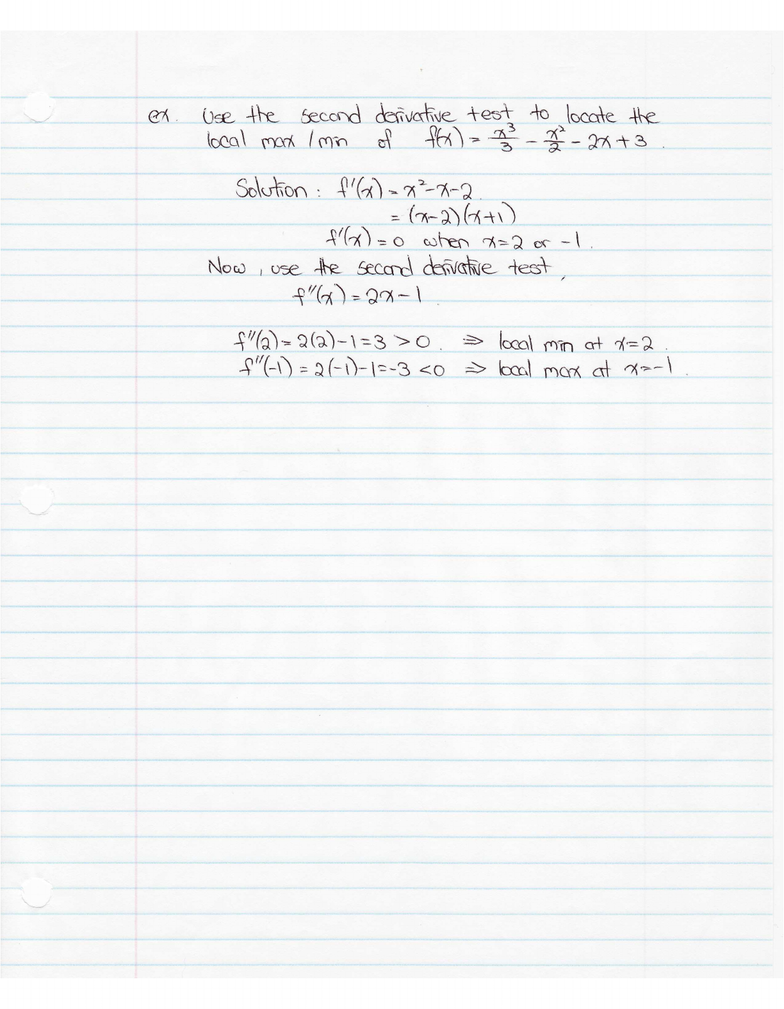 ex. Use the second derivative test to locate the
local max / min of f(x) = x³/3 - x²/2 - 2x + 3
Solution : f'(x) = x²-x-2
= (x-2)(x+1)
f'(x) = 0 when x=2 or -1.
Now, use the second derivative test,
f''(x) = 2x-1
f''(2) = 2(2)-1=3 >0. ⇒ local min at x=2.
f''(-1) = 2(-1)-1=-3 <0 ⇒ local max at x=-1.